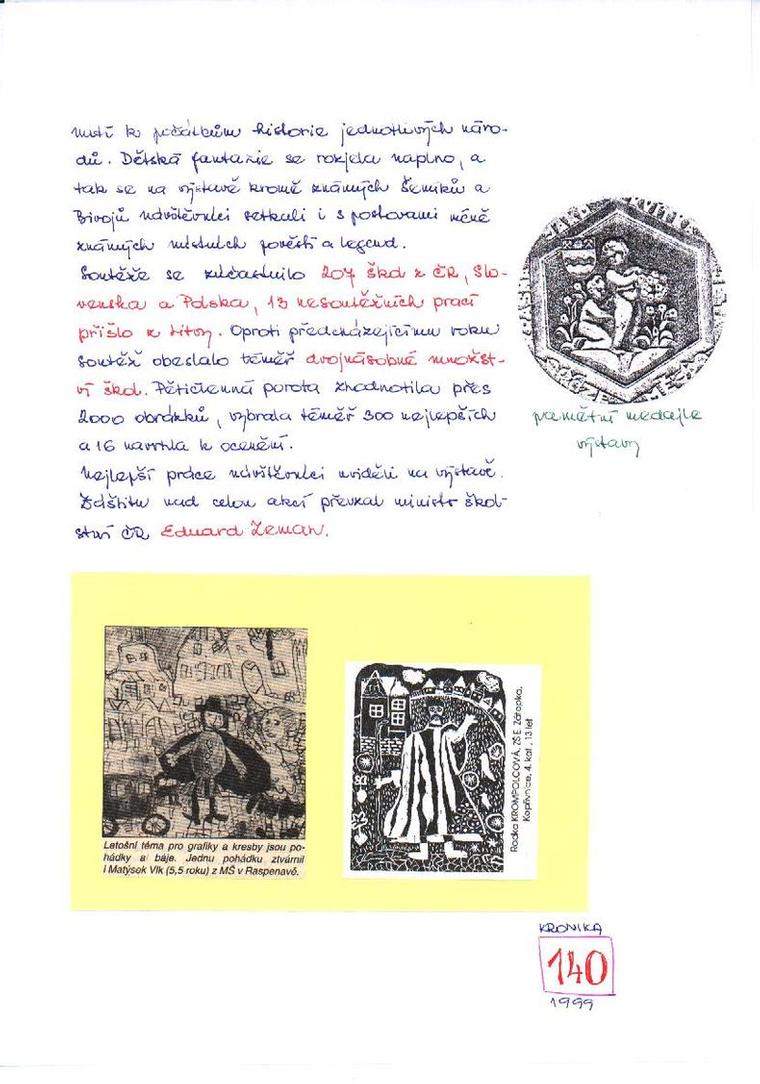 nutí k počátkům historie jednotlivých náro-
dů. Dětská fantazie se rozjela naplno, a
tak se na výstavě kromě známých Šemíků a
Bivojů návštěvníci setkali i s postavami méně
známých místních pověstí a legend.
Soutěže se zúčastnilo 207 škol z ČR, Slo-
venska a Polska, 13 nesoutěžních prací
přišlo z Litvy. Oproti předcházejícímu roku
soutěž obeslalo téměř dvojnásobné množst-
ví škol. Pětičlenná porota zhodnotila přes
2000 obrázků, vybrala téměř 300 nejlepších
a 16 navrhla k ocenění.
Nejlepší práce návštěvníci uviděli na výstavě.
Záštitu nad celou akcí převzal ministr škol-
ství ČR Eduard Zeman.
pamětní medaile
výstavy
Letošní téma pro grafiky a kresby jsou po-
hádky a báje. Jednu pohádku ztvárnil
i Matýsek Vlk (5,5 roku) z MŠ v Raspenavě.
Radka KROMPOLCOVÁ, ZŠ E. Zátopka,
Kopřivnice, 4. kat., 13 let
KRONIKA
140
1999